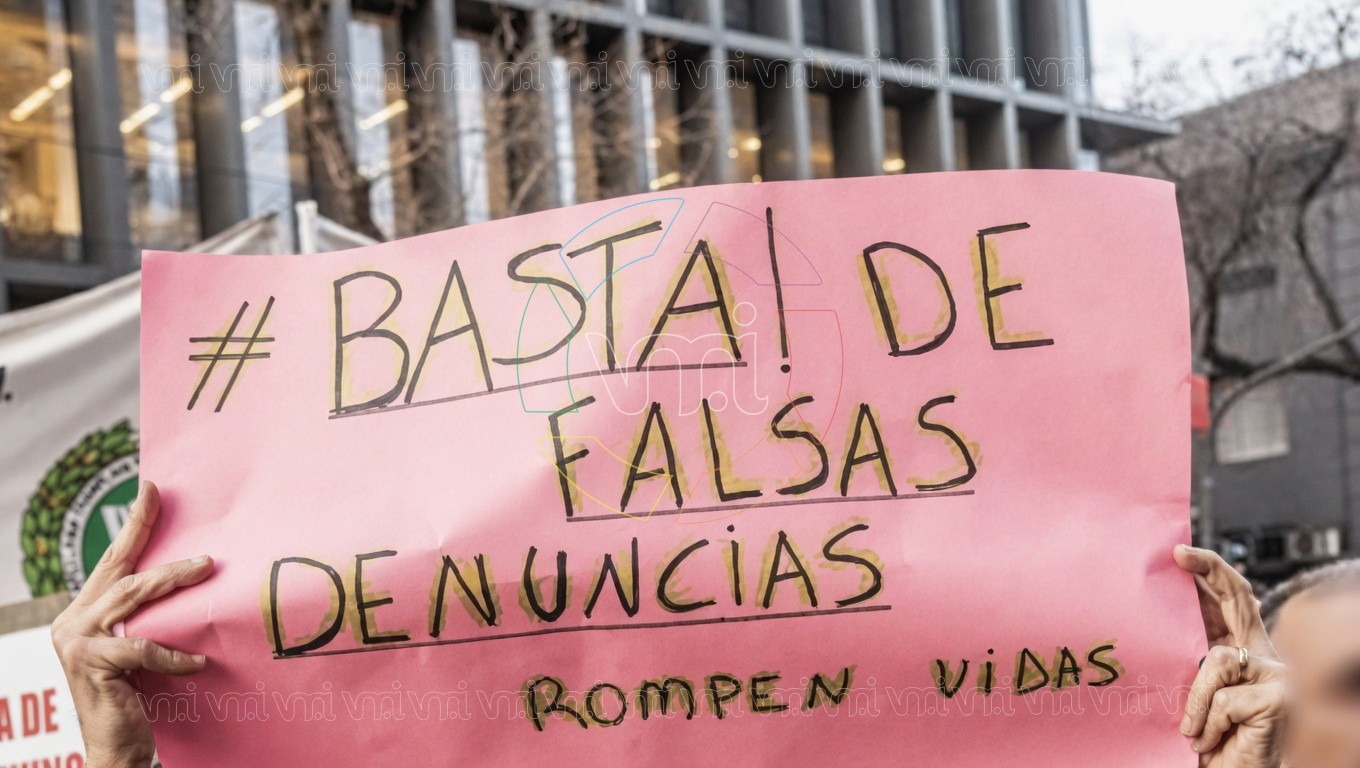 # BASTA! DE
FALSAS
DENUNCIAS
ROMPEN VIDAS
A DE
vm.i